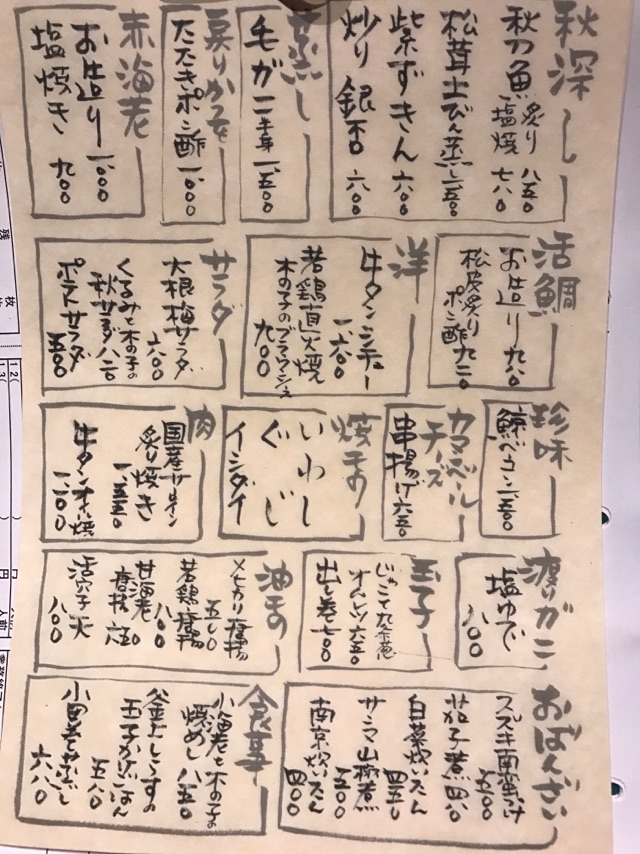 秋深し
秋刀魚 炙り 八五〇
塩焼 七八〇
松茸土びん蒸し 一、二五〇
紫ずきん 六〇〇
炒り銀杏 六〇〇
蒸し
毛ガニ 半身 一、五〇〇
戻りかつを
たたきポン酢 一、〇〇〇
赤海老
お造り 一、〇〇〇
塩焼き 九〇〇
活鯛
お造り 九八〇
松皮炙り
ポン酢 九二〇
洋
牛タンシチュー
一、六〇〇
若鶏直火焼
木の子のブラマンジェ
九〇〇
サラダ
大根梅サラダ
六〇〇
くるみと木の子の
秋サラダ 八二〇
ポテトサラダ
五〇〇
珍味
鯨ベーコン 一、二五〇
カマンベール
チーズ
串揚げ 六五〇
焼もの
いわし
ぐじ
イシダイ
肉
国産サーロイン
炙り焼き
牛タンオイル焼
一、一〇〇
渡りガニ
塩ゆで
八〇〇
玉子
じゃこと九条葱
オムレツ 六五〇
出し巻 七〇〇
油もの
メヒカリ唐揚
五五〇
若鶏唐揚
八〇〇
甘海老
唐揚 六五〇
活穴子天
八〇〇
おばんざい
スズキ南蛮づけ
五〇〇
茄子煮 四八〇
白菜炊いたん
四五〇
サンマ山椒煮
五〇〇
南京炊いたん
四〇〇
食事
小海老と木の子の
焼めし 八五〇
釜上しらすの
玉子かけごはん
五八〇
小田巻むし
六八〇